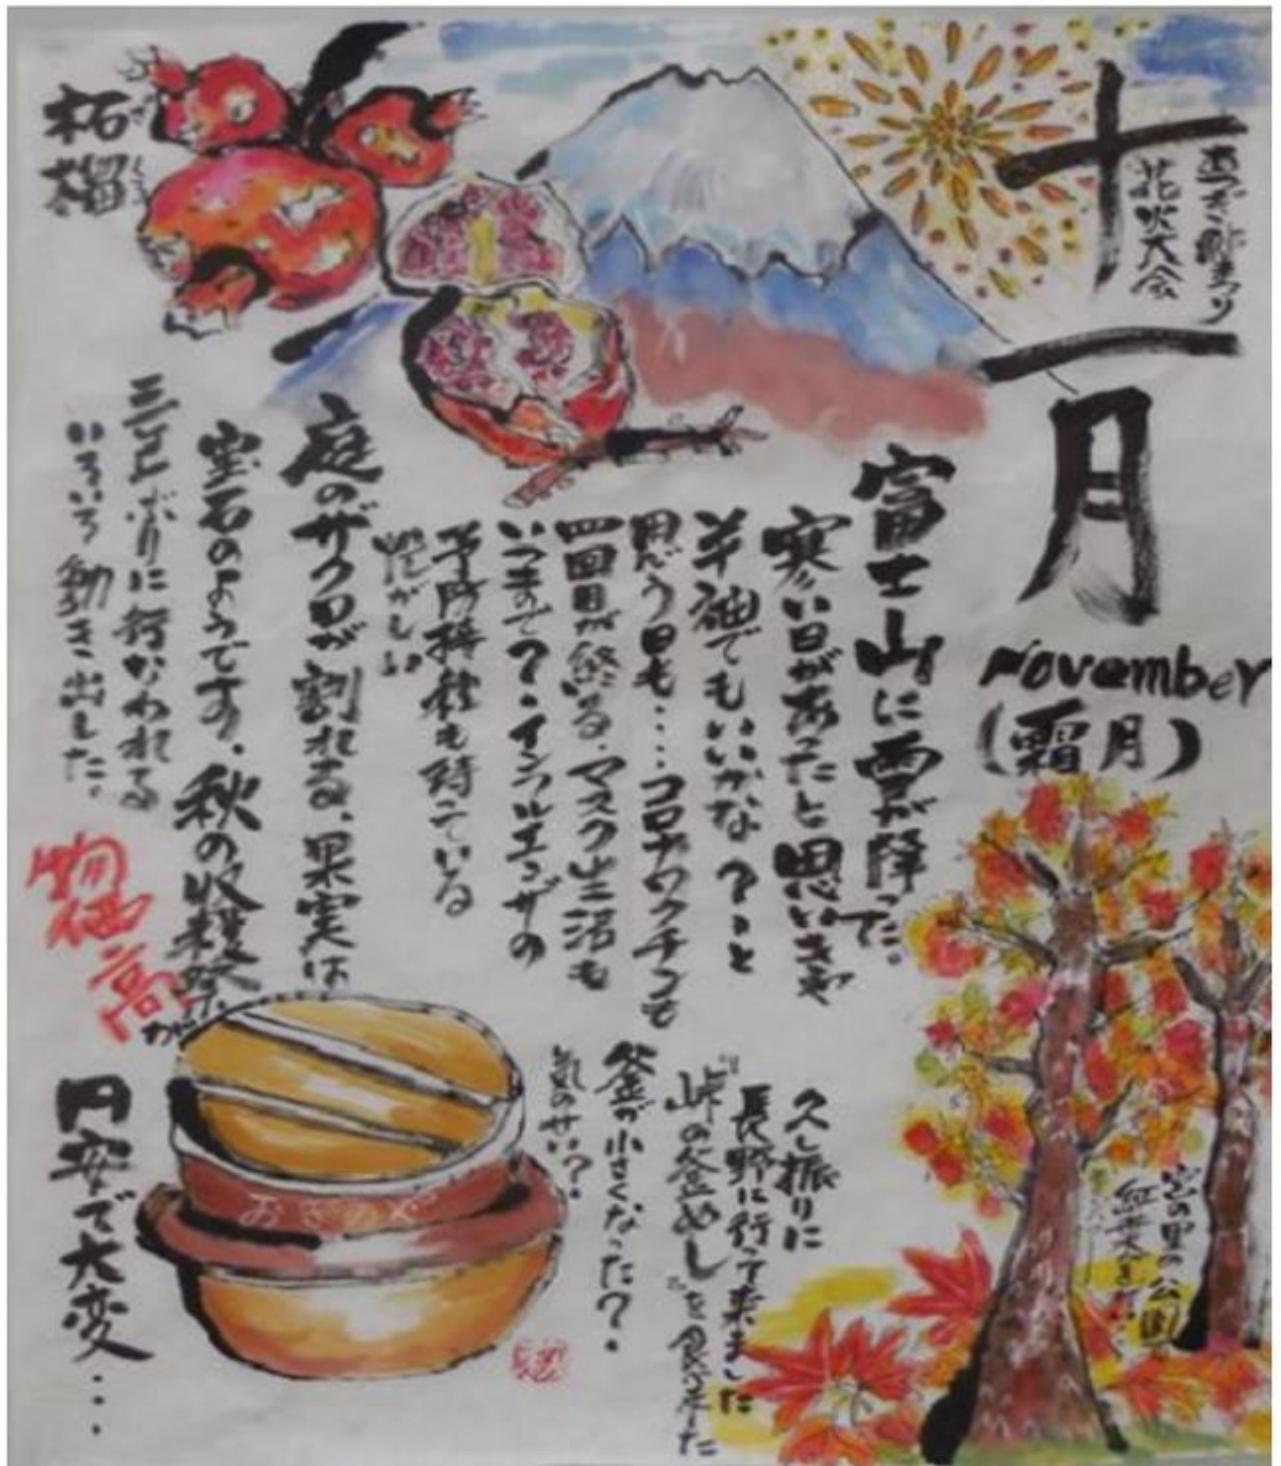 十一月
あつぎ鮎まつり
花火大会
November
(霜月)
富士山に雪が降った。
寒い日があったと思いきや
半袖でもいいかな?と
思う日も…コロナワクチンも
四回目が終る。マスク生活も
いつまで?。インフルエンザの
予防接種も待っている
忙がしい
柘榴
ざくろ
庭のザクロが割れる、果実は
宝石のようです。秋の収穫祭が
三年ぶりに行なわれる
いろいろ動き出した。
物価高
円安で大変…
久し振りに
長野に行って来ました
"峠の釜めし"を食べました
釜が小さくなった?。
気のせい?。
おぎのや
宮の里の公園
紅葉